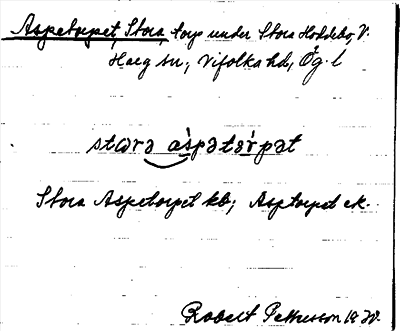 Aspetorpet, Stora, torp under Stora Hoddebo, V.
Harg sn, Vifolka hd, Ög. l
stωrə àspətə́rpət
Stora Aspetorpet kb; Asptorpet ek.
Robert Petterson 1870.